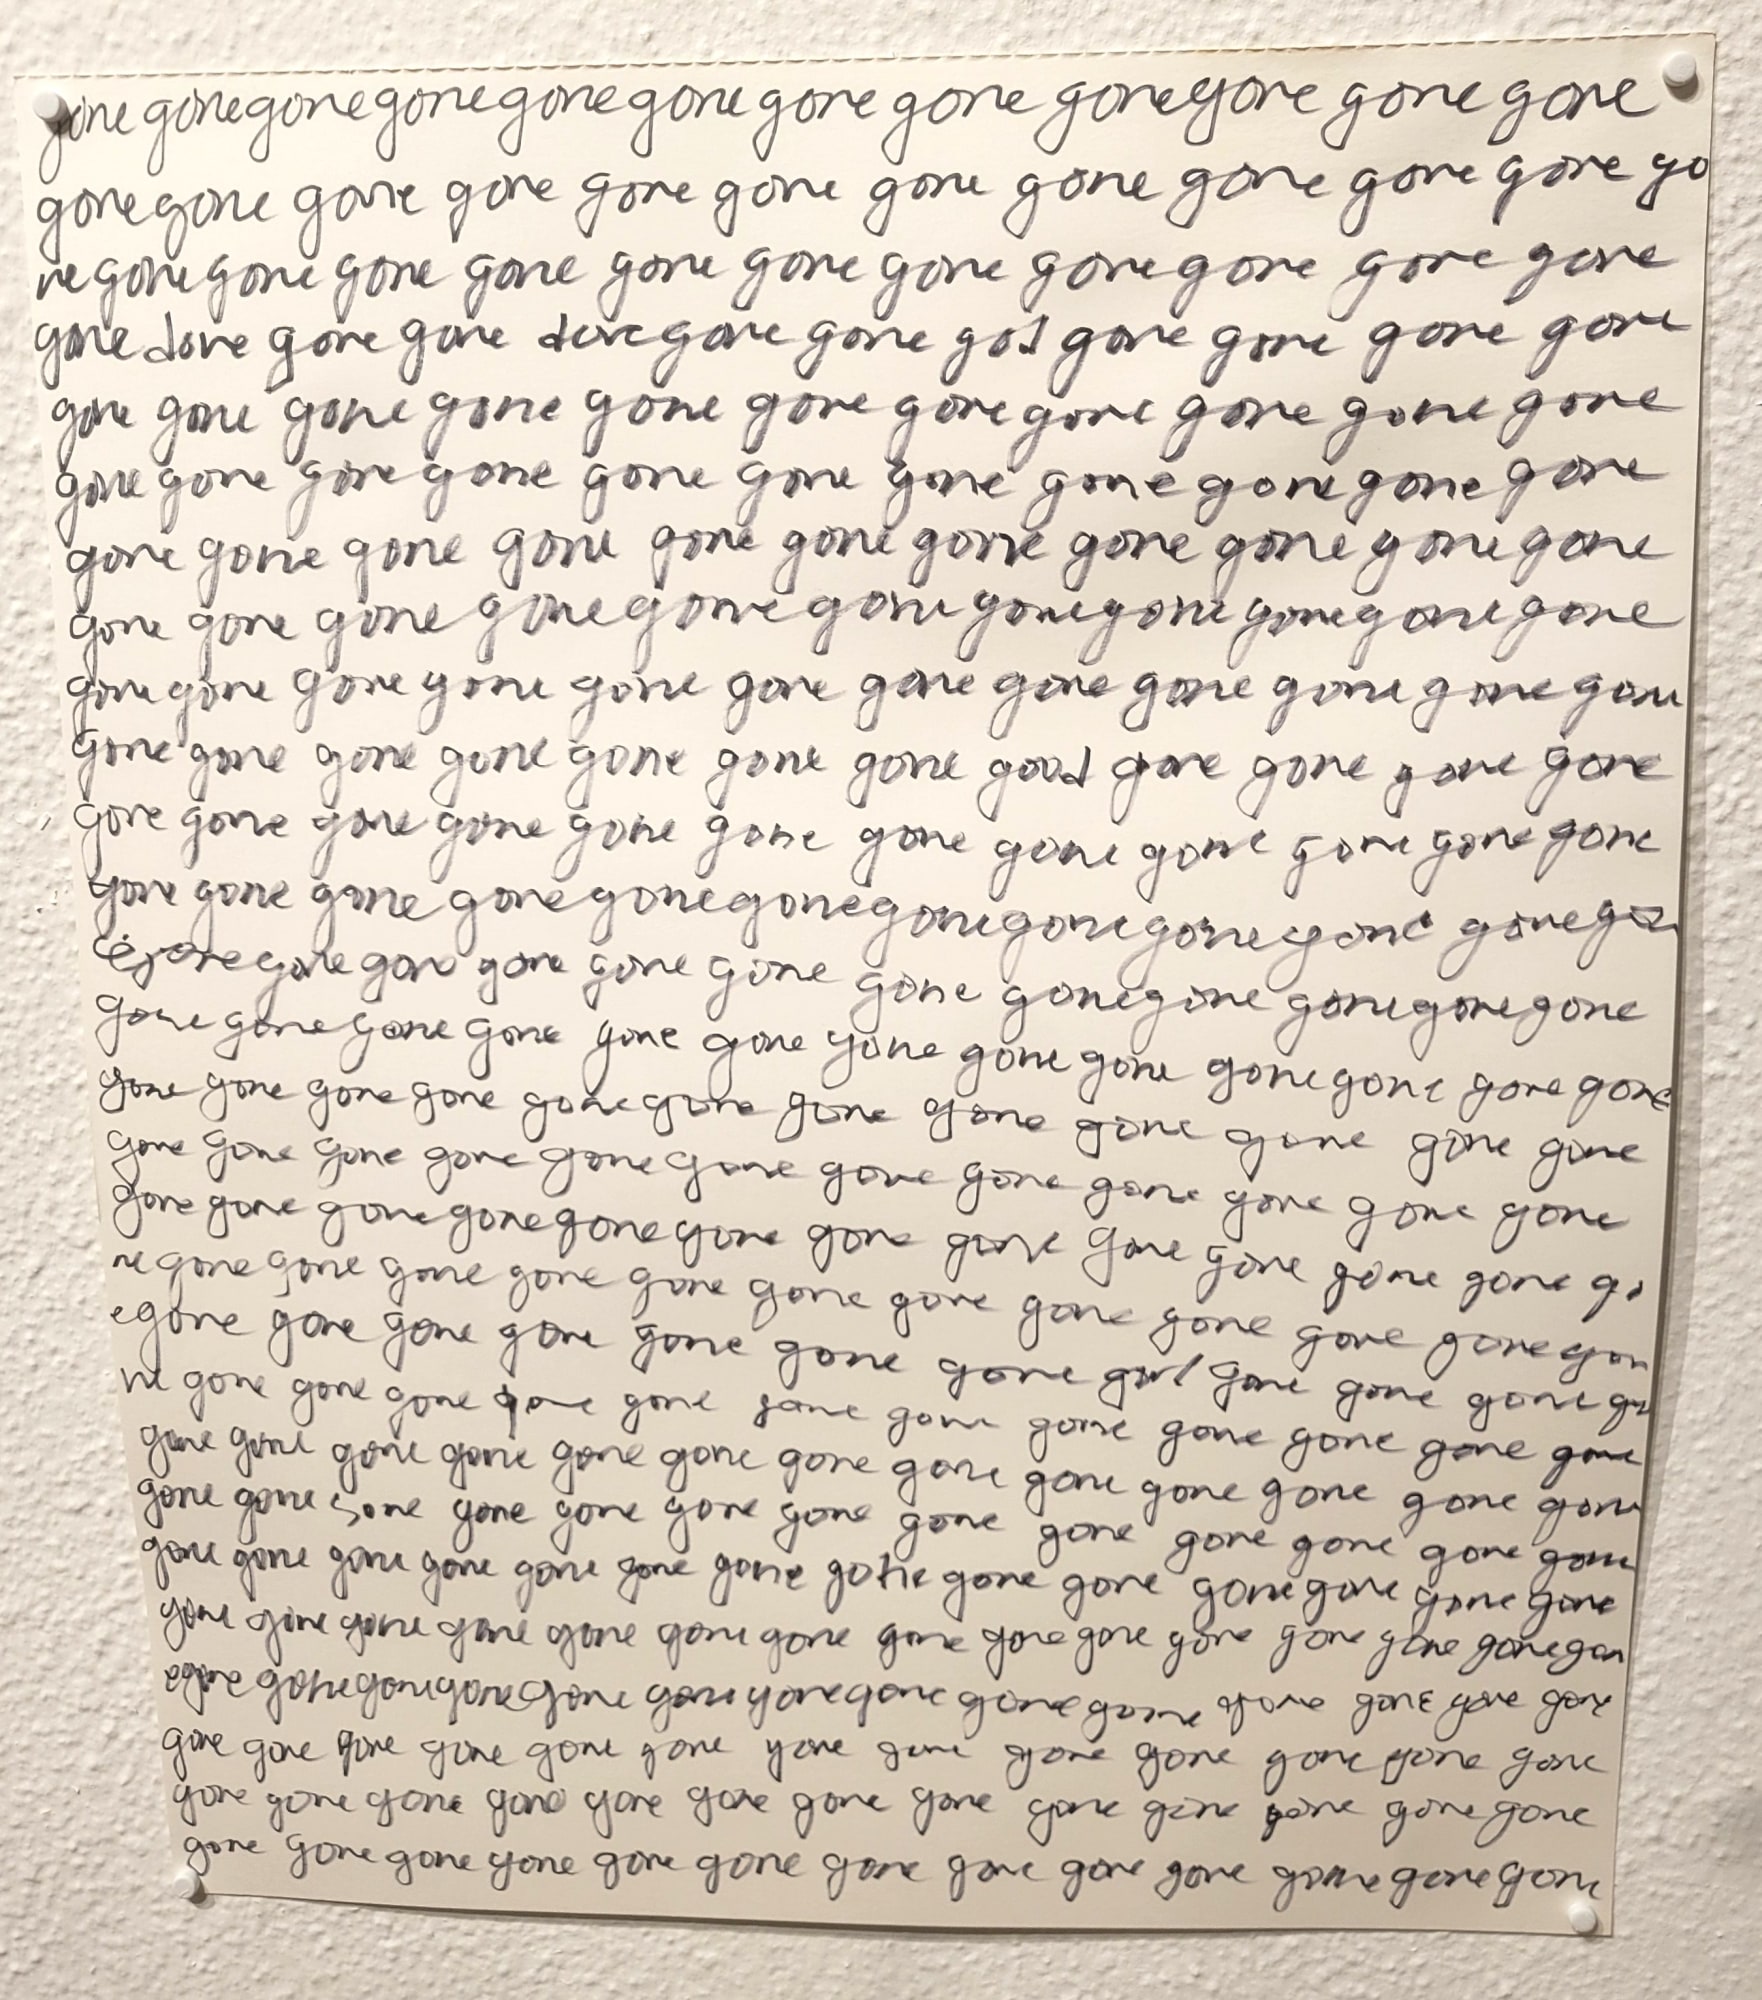 gone gone gone gone gone gone gone gone gone gone gone gone
gone gone gone gone gone gone gone gone gone gone gone go
ne gone gone gone gone gone gone gone gone gone gone gone
gone done gone gone done gone gone god gone gone gone gone
gone gone gone gone gone gone gone gone gone gone gone
gone gone gone gone gone gone gone gone gone gone gone
gone gone gone gone gone gone gone gone gone gone gone
gone gone gone gone gone gone gone gone gone gone gone
gone gone gone gone gone gone gone gone gone gone gone gone
gone gone gone gone gone gone gone good gone gone gone gone
gone gone gone gone gone gone gone gone gone gone gone gone
gone gone gone gone gone gone gone gone gone gone gone
gone gone gone gone gone gone gone gone gone gone gone
gone gone gone gone gone gone gone gone gone gone gone gone gone
gone gone gone gone gone gone gone gone gone gone gone gone
gone gone gone gone gone gone gone gone gone gone gone gone
gone gone gone gone gone gone gone gone gone gone gone gone go
ne gone gone gone gone gone gone gone gone gone gone gone gon
e gone gone gone gone gone gone gone girl gone gone gone go
ne gone gone gone gone gone gone gone gone gone gone gone gone
gone gone gone gone gone gone gone gone gone gone gone gone gone
gone gone gone gone gone gone gone gone gone gone gone gone gone
gone gone gone gone gone gone gone gone gone gone gone gone gone gone
gone gone gone gone gone gone gone gone gone gone gone gone gone gone gon
e gone gone gone gone gone gone gone gone gone gone gone gone gone gone
gone gone gone gone gone gone gone gone gone gone gone gone gone
gone gone gone gone gone gone gone gone gone gone gone gone gone
gone gone gone gone gone gone gone gone gone gone gone gone gone